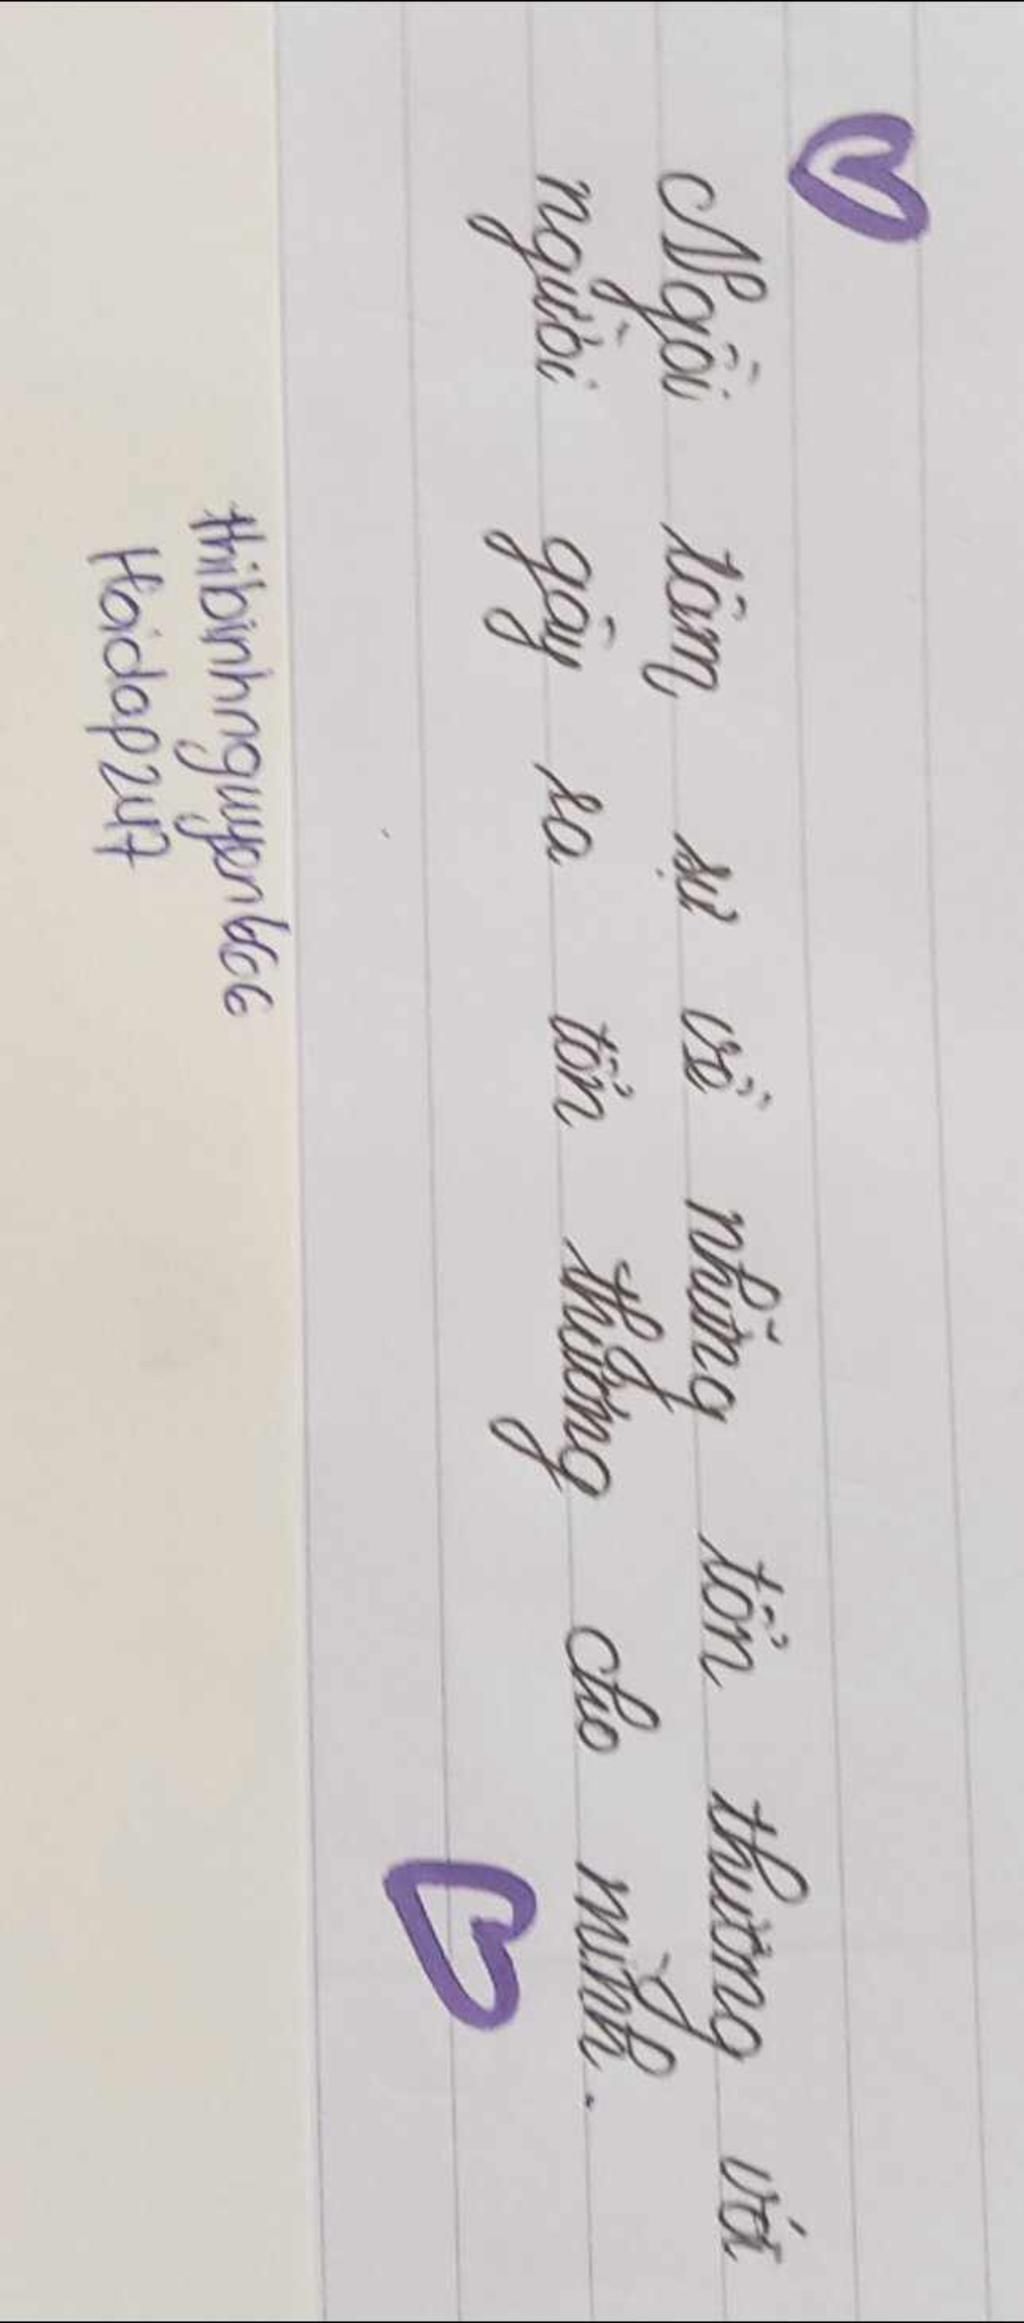 Ngồi tâm sự về những tổn thương với
người gây ra tổn thương cho mình.
thibinhnguyen666
Hoidap247